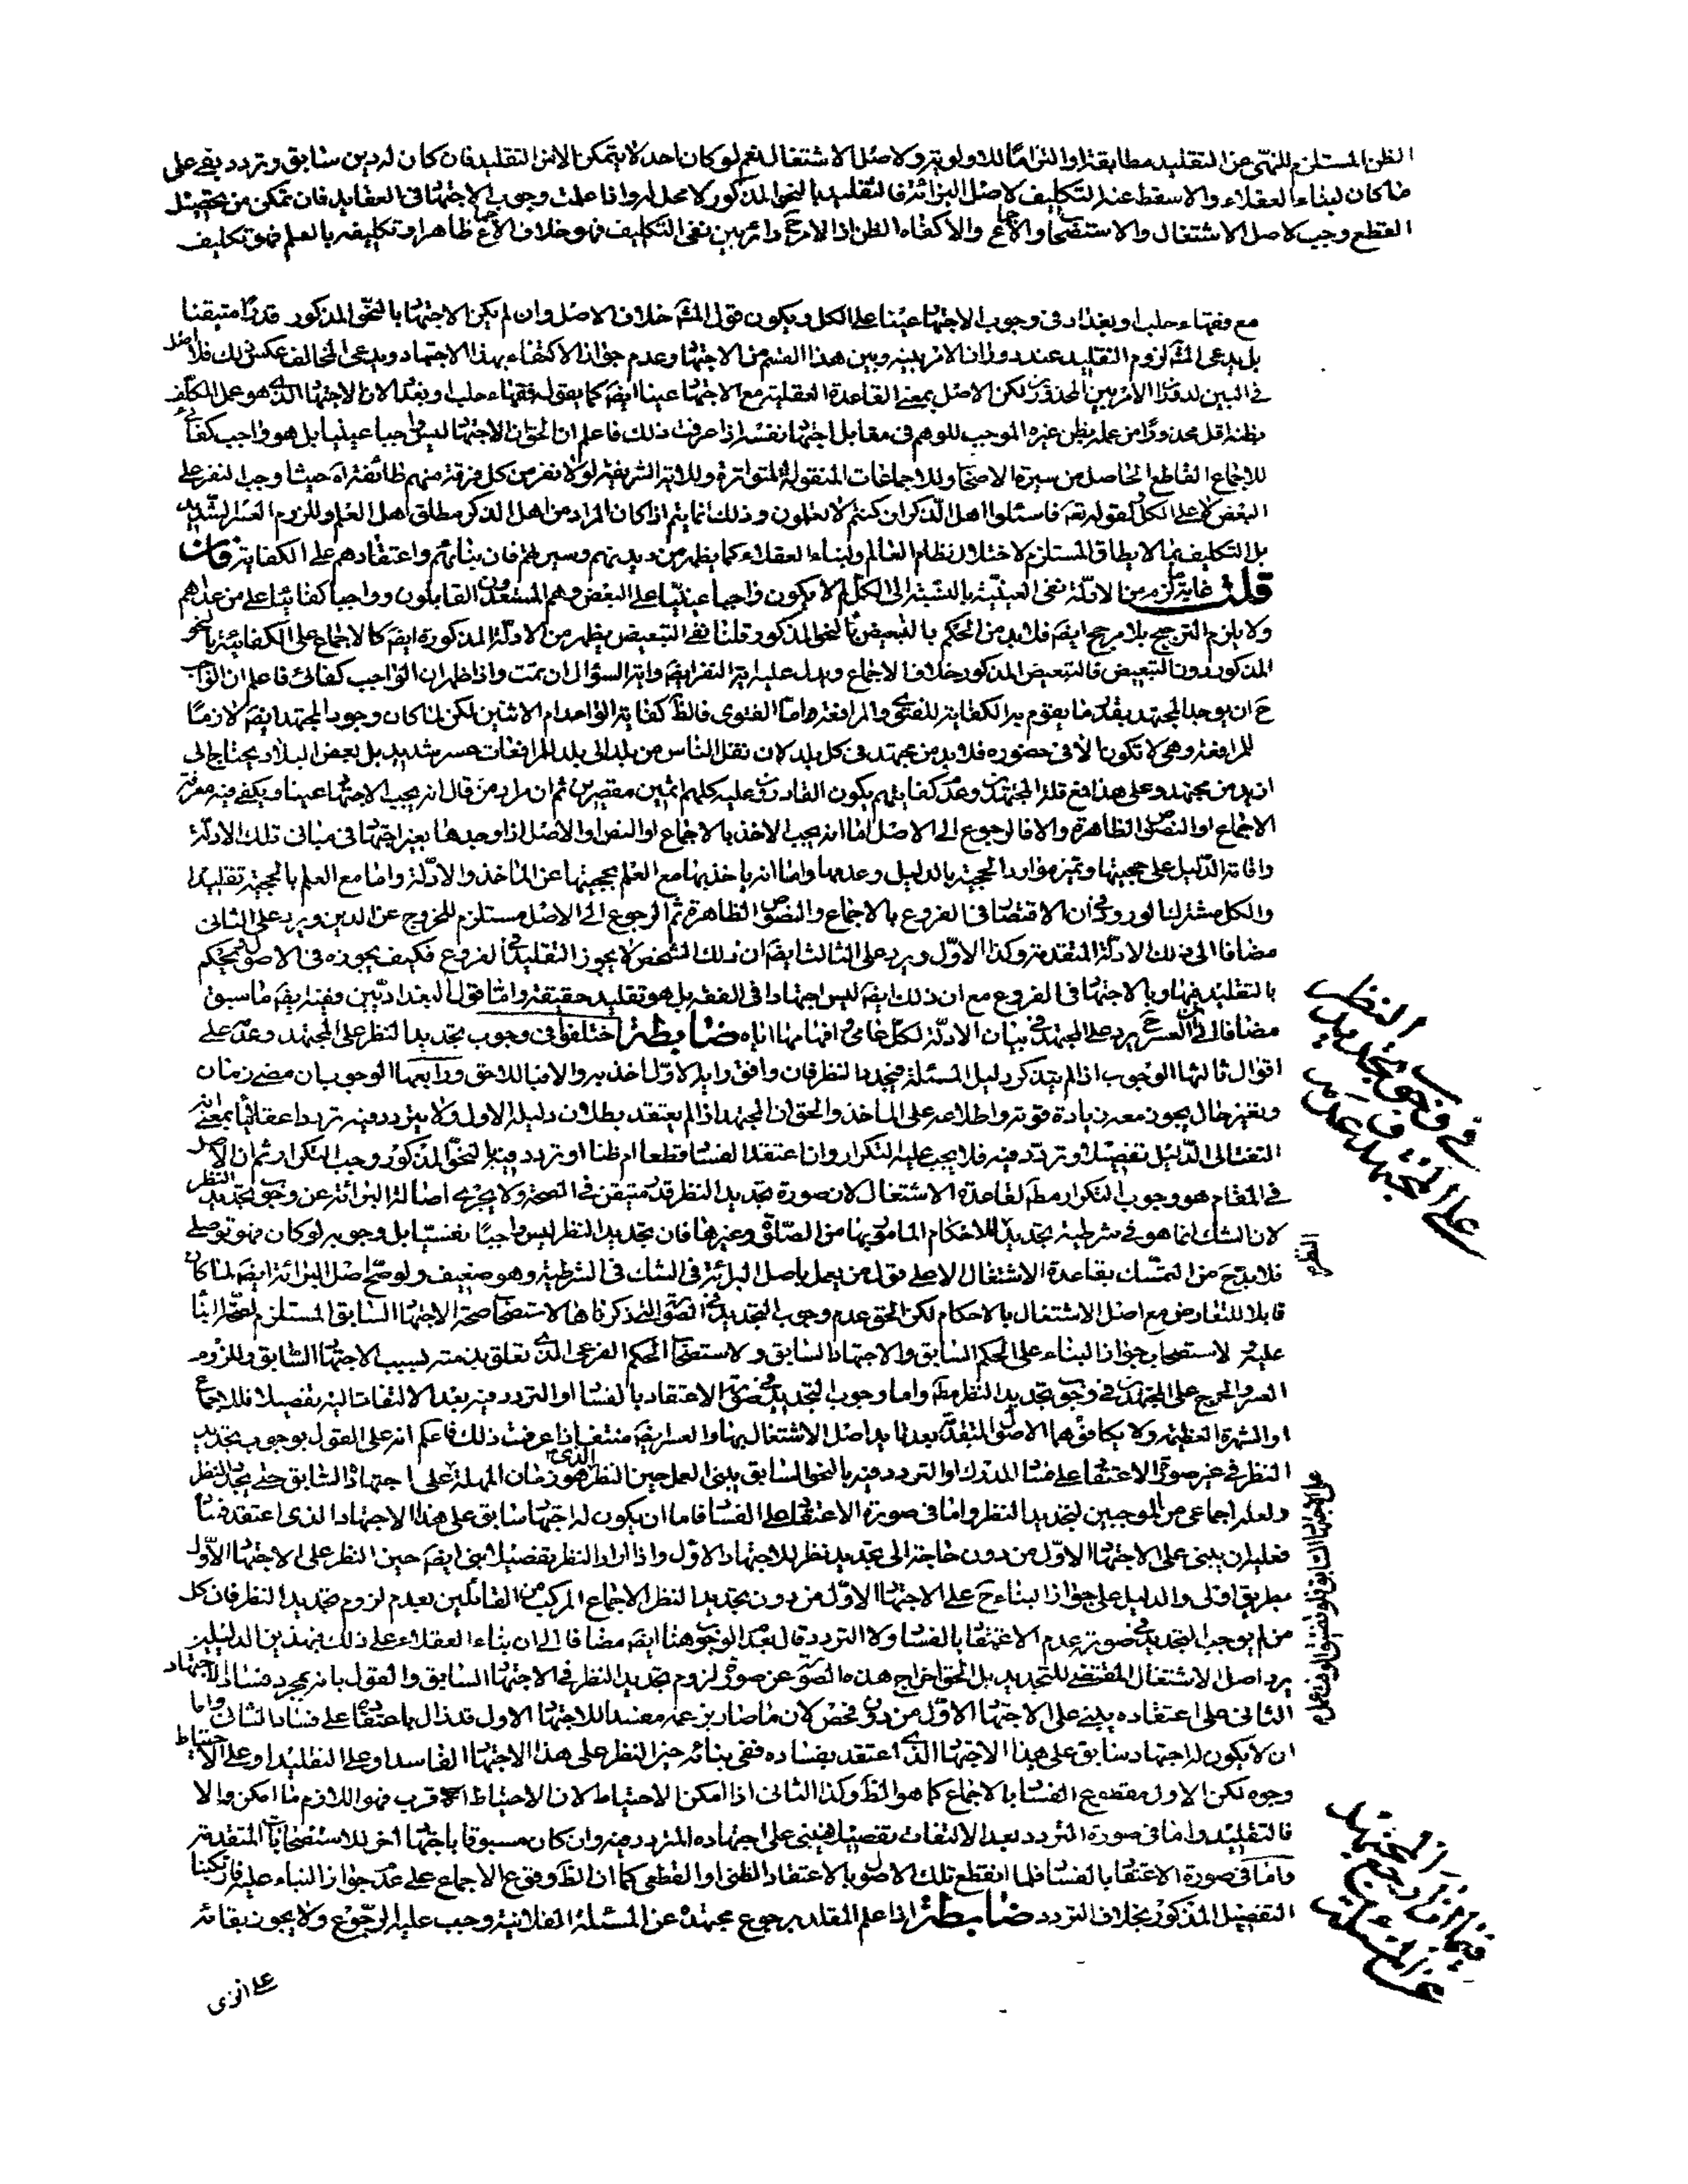 الظن المستلزم للنهى عن التقليد مطابقة او التزاما للاولوية ولاصل الاشتغال نعم لو كان احد لا يتمكن الا من التقليد فان كان له دين سابق وتردد بقى على
ما كان لبناء العقلاء والا سقط عنه التكليف لاصل البرائة فالتقليد بالنحو المذكور لا محل له واذا علمت وجوب الاجتهاد فى العقايد فان تمكن من تحصيل
القطع وجب لاصل الاشتغال والاستصحاب والاجماع والاكتفاء الظن اذ الامر ح دائر بين نفى التكليف فهو خلاف الاجماع ظاهرا وتكليفه بالعلم فهو تكليف
مع فقهاء حلب او بغداد فى وجوب الاجتهاد عينا على الكل ويكون قول المش خلاف الاصل وان لم يكن الاجتهاد بالنحو المذكور قدرا متيقنا
بل يدعى المش لزوم التقليد عند دوران الامر بينه وبين هذا القسم من الاجتهاد وعدم جواز الاكتفاء بهذا الاجتهاد ويدعى المخالف عكس ذلك فلا اصل
فى البين لدوران الامر بين المحذورين لكن الاصل بمعنى القاعدة العقلية مع الاجتهاد عينا ايضا كما يقوله فقهاء حلب وبغداد لان الاجتهاد الذى هو عمل المكلف
بظنه اقل محذورا من عمله بظن غيره الموجب للوهم فى مقابل اجتهاد نفسه اذا عرفت ذلك فاعلم ان الحق ان الاجتهاد ليس واجبا عينيا بل هو واجب كفائى
للاجماع القاطع الحاصل من سيرة الاصحاب وللاجماعات المنقولة المتواترة وللاية الشريفة لولا نفر من كل فرقة منهم طائفة اه حيث اوجب النفر على
البعض لا على الكل ولقوله تعم فاسئلوا اهل الذكر ان كنتم لا تعلمون وذلك انما يتم اذا كان المراد من اهل الذكر مطلق اهل العلم وللزوم العسر الشديد
بل التكليف بما لا يطاق المستلزم لاختلال نظام العالم ولبناء العقلاء كما يظهر من ديدنهم وسيرتهم فان بنائهم واعتقادهم على الكفاية فان
قلت غاية ما لزم من الادلة نفى العينية بالنسبة الى الكل لم لا يكون واجبا عينيا على البعض وهم المستعدون القابلون وواجبا كفائيا على من عداهم
ولا يلزم الترجيح بلا مرجح ايضا فلابد من الحكم بالتبعيض بالنحو المذكور قلنا نفى التبعيض يظهر من الادلة المذكورة ايضا كالاجماع على الكفائية بالنحو
المذكور دون التبعيض فالتبعيض المذكور خلاف الاجماع ويدل عليه اية النفر ايضا واية السؤال ان تمت واذا ظهر ان الواجب كفائى فاعلم ان الواجب
ح ان يوجد المجتهد بقدر ما يقوم به الكفاية للفتوى والمرافعة واما الفتوى فالظ كفاية الواحد ام الاثنين لكن لما كان وجود المجتهد ايضا لازما
للمرافعة وهى لا تكون الا فى حضوره فلابد من مجتهد فى كل بلد لان نقل الناس من بلد الى بلد للمرافعات عسر شديد بل بعض البلاد يحتاج الى
ازيد من مجتهد وعلى هذا فمع قلة المجتهدين وعدم كفايتهم يكون القادرون عليه كلهم اثمين مقصرين ثم ان مراد من قال انه يجب الاجتهاد عينا ويكفى فيه معرفة
الاجماع او النصوص الظاهرة والا فالرجوع الى الاصل اما انه يجب الاخذ بالاجماع او النص او الاصل اذا وجدها بغير اجتهاد فى مبانى تلك الادلة
واقامة الدليل على حجيتها وتميز موارد الحجية بالدليل وعدمها واما انه ياخذ بها مع العلم بحجيتها عن الماخذ والادلة واما مع العلم بالحجية تقليدا
والكل مشترك الورود فى ان الاقتصار فى الفروع بالاجماع والنصوص الظاهرة ثم الرجوع الى الاصل مستلزم للخروج عن الدين ويرد على الثانى
مضافا الى ذلك الادلة المتقدمة وكذا الاول ويرد على الثالث ايضا ان ذلك الشخص لا يجوز التقليد فى الفروع فكيف يجوزه فى الاصول فيحكم
بالتقليد فيها وبالاجتهاد فى الفروع مع ان ذلك ايضا ليس اجتهادا فى الفقه بل هو تقليد حقيقة واما قول البغداديين ففيه ايضا ما سبق
مضافا الى ان العسر ح يرد على المجتهد فى بيان الادلة لكل عامى وافهامها اياه ضابطة اختلفوا فى وجوب تجديد النظر على المجتهد وعدمه على
اقوال ثالثها الوجوب اذا لم يتذكر دليل المسئلة فيجدد النظر فان وافق رايه الاول اخذ به والا فباللاحق ورابعها الوجوب ان مضى زمان
وتغير حال يجوز معه زيادة قوته واطلاعه على الماخذ والحق ان المجتهد اذا لم يعتقد بطلان دليله الاول ولا يتردد فيه ترددا عقلائيا بمعنى انه
التفت الى الدليل تفصيلا وتردد فيه فلا يجب عليه التكرار وان اعتقد الفساد قطعا ام ظنا او تردد فيه بالنحو المذكور وجب التكرار ثم ان الاصل
فى المقام هو وجوب التكرار مط لقاعدة الاشتغال لان صورة تجديد النظر قدر متيقن فى الصحة ولا يجرى اصالة البرائة عن وجوب تجديد النظر
لان الشك انما هو فى شرطية تجديده للاحكام المامور بها من الصلوة وغيرها فان تجديد النظر ليس واجبا نفسيا بل وجوبه لو كان فهو توصلى
فلابد ح من التمسك بقاعدة الاشتغال الا على قول من يعمل باصل البرائة فى الشك فى الشرطية وهو ضعيف ولو صح اصل البرائة ايضا لما كان
قابلا للتعارض مع اصل الاشتغال بالاحكام لكن الحق عدم وجوب التجديد فى الصورة التى ذكرناها لاستصحاب صحة الاجتهاد السابق المستلزم لصحة البناء
عليه ولاستصحاب جواز البناء على الحكم السابق والاجتهاد السابق ولاستصحاب الحكم الفرعى الذى تعلق بذمته بسبب الاجتهاد السابق وللزوم
العسر والحرج على المجتهدين فى وجوب تجديد النظر مط واما وجوب التجديد فى صورة الاعتقاد بالفساد او التردد فيه بعد الالتفات اليه تفصيلا فللاجماع
او الشهرة العظيمة ولا يكافؤهما الاصول المتقدمة بعد تاييد اصل الاشتغال بهما والعسر ايضا منتف اذا عرفت ذلك فاعلم انه على القول بوجوب تجديد
النظر فى غير صورة الاعتقاد على فساد المدرك او التردد فيه بالنحو السابق يبنى العمل حين النظر الذى هو زمان المهلة على اجتهاده السابق حتى يجدد النظر
ولعله اجماعى من الموجبين لتجديد النظر واما فى صورة الاعتقاد على الفساد فاما ان يكون له اجتهاد سابق على هذا الاجتهاد الذى اعتقد فساده
فعليه ان يبنى على الاجتهاد الاول من دون حاجة الى تجديد نظر للاجتهاد الاول واذا اراد النظر تفصيلا يبنى ايضا حين النظر على الاجتهاد الاول
بطريق اولى والدليل على جواز البناء ح على الاجتهاد الاول من دون تجديد النظر الاجماع المركب من القائلين بعدم لزوم تجديد النظر فان كل
من لم يوجب التجديد فى صورة عدم الاعتقاد بالفساد ولا التردد قال بعدم الوجوب هنا ايضا مضافا الى ان بناء العقلاء على ذلك فبهذين الدليلين
يرد اصل الاشتغال المقتضى للتجديد بل الحق اخراج هذه الصورة عن صورة لزوم تجديد النظر فى الاجتهاد السابق والقول بانه بمجرد فساد الاجتهاد
الثانى على اعتقاده يبنى على الاجتهاد الاول من دون فحص لان ما صار بزعمه مفسدا للاجتهاد الاول قد زال باعتقاده على فساد الثانى واما
ان لا يكون له اجتهاد سابق على هذا الاجتهاد الذى اعتقد بفساده ففى بنائه حين النظر على هذا الاجتهاد الفاسد او على التقليد او على الاحتياط
وجوه لكن الاول مقطوع الفساد بالاجماع كما هو الظ وكذا الثانى اذا امكن الاحتياط لان الاحتياط اقرب فهو اللازم ما امكن والا
فالتقليد واما فى صورة التردد بعد الالتفات تفصيلا فيبنى على اجتهاده المتردد فيه وان كان مسبوقا باجتهاد اخر للاستصحابات المتقدمة
واما فى صورة الاعتقاد بالفساد فلما انقطع تلك الاصول بالاعتقاد الظنى او القطعى كما ان الظ وقوع الاجماع على عدم جواز البناء عليه فارتكبنا
التفصيل المذكور بخلاف التردد ضابطة اذا علم المقلد برجوع مجتهده عن المسئلة الفلانية وجب عليه الرجوع ولا يجوز بقائه
فى وجوب تجديد النظر
على المجتهد وعدمه
فيما اذا رجع المجتهد
عن المسئلة